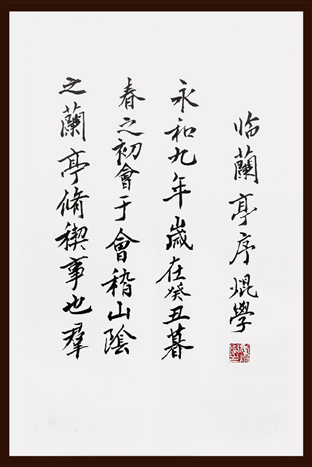 临蘭亭序焜學
永和九年歲在癸丑暮
春之初會于會稽山陰
之蘭亭脩禊事也羣